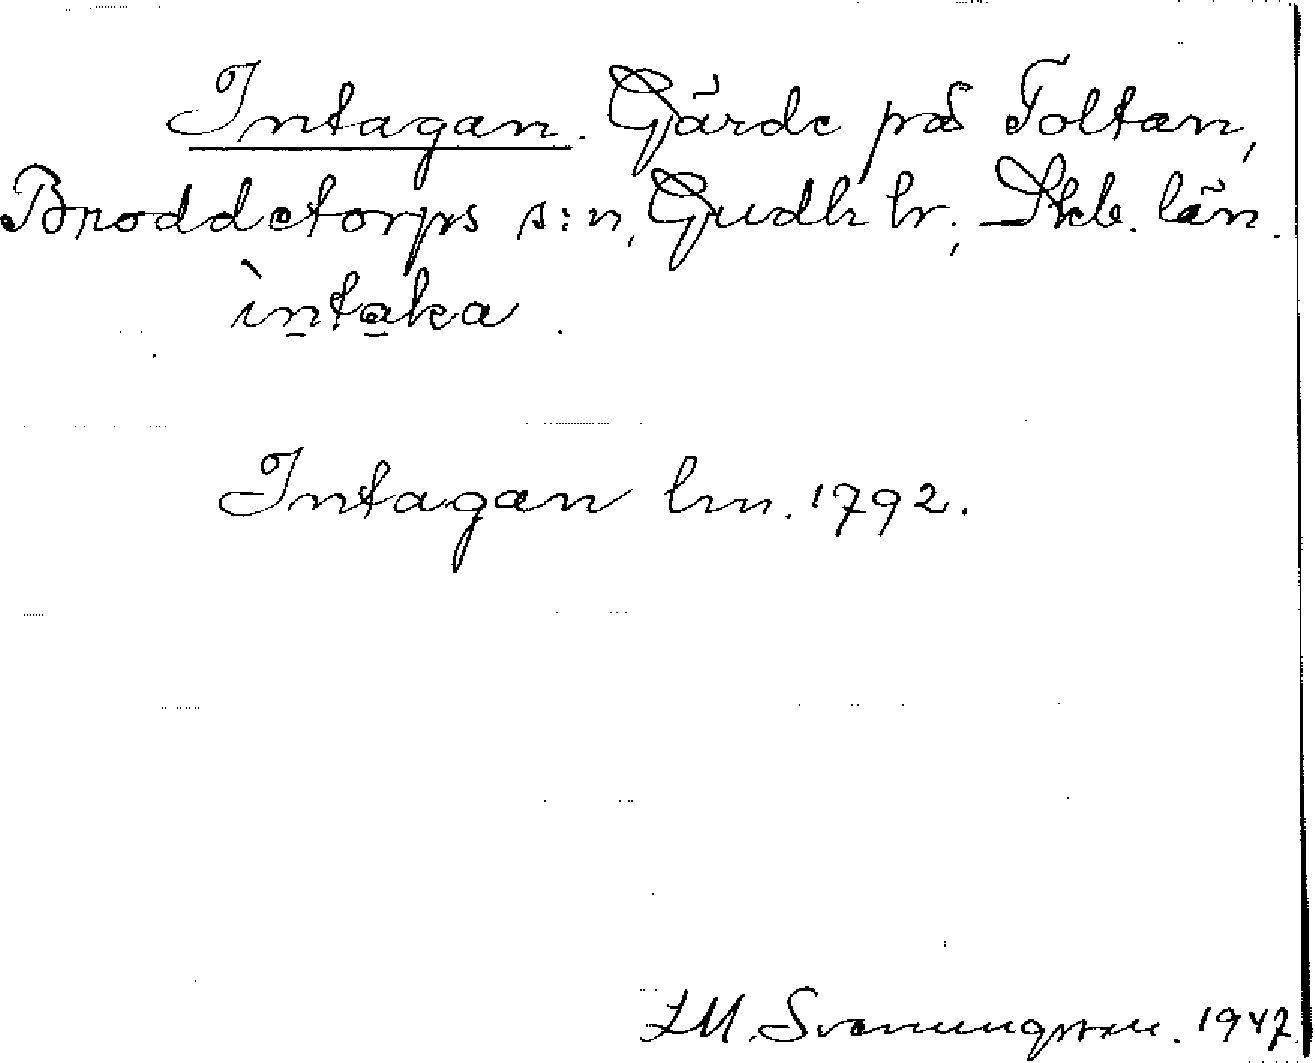 Intagan. Gärde på Toltan,
Broddetorps s:n, Gudh hr, Skb. län.
ìntaka
Intagan hm. 1792.
LM. Svenungsson. 1947.